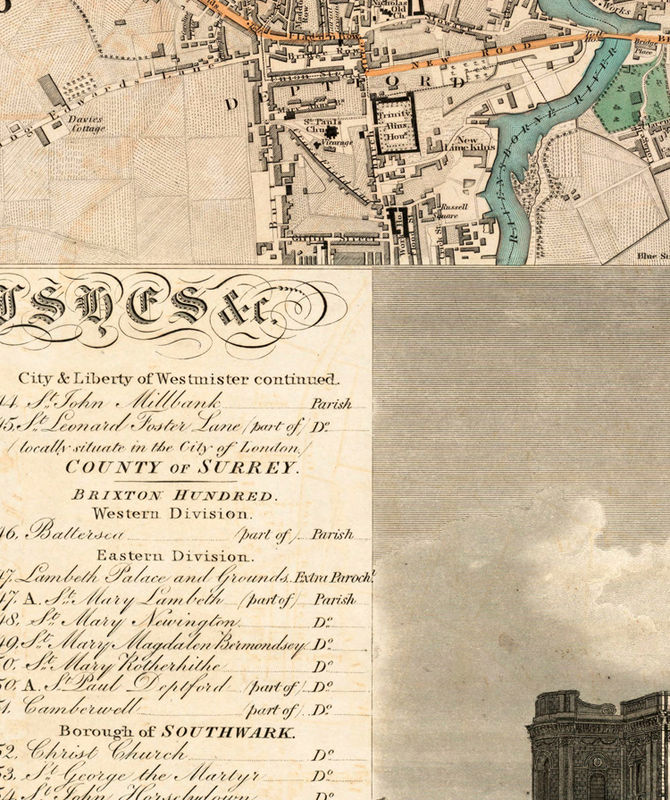 Nicholas
Old
Ch.
Works
NEW ROAD
Bridge
Place
DEPTFORD
Edward Lane
Davies
Cottage
St. Paul's
Church
Vicarage
Trinity
Alms
Hou.
New
Lime Kilns
RAVENSBORNE RIVER
Russell
Square
ISHES &c.
City & Liberty of Westmister continued.
44. St. John Millbank Parish
45. St. Leonard Foster Lane (part of) Do.
(locally situate in the City of London.)
COUNTY OF SURREY.
BRIXTON HUNDRED.
Western Division.
46. Battersea (part of) Parish
Eastern Division.
47. Lambeth Palace and Grounds. Extra Paroch.l
47. A. St. Mary Lambeth (part of) Parish
48. St. Mary Newington Do.
49. St. Mary Magdalen Bermondsey. Do.
50. St. Mary Rotherhithe Do.
50. A. St. Paul Deptford (part of) Do.
51. Camberwell (part of) Do.
Borough of SOUTHWARK.
52. Christ Church Do.
53. St. George the Martyr Do.
54. St. John Horselydown Do.